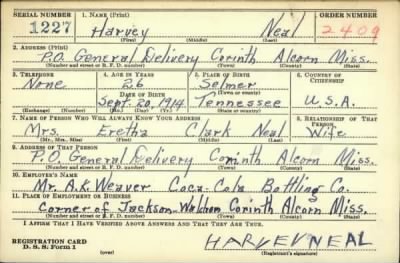 SERIAL NUMBER 1. NAME (Print) ORDER NUMBER
1227 Harvey Neal 2409
(First) (Middle) (Last)
2. ADDRESS (Print)
P.O. General Delivery Corinth Alcorn Miss.
(Number and street or R. F. D. number) (Town) (County) (State)
3. TELEPHONE 4. AGE IN YEARS 5. PLACE OF BIRTH 6. COUNTRY OF CITIZENSHIP
None 26 Selmer
DATE OF BIRTH (Town or county)
Sept. 20, 1914 Tennessee U.S.A.
(Exchange) (Number) (Mo.) (Day) (Yr.) (State or country)
7. NAME OF PERSON WHO WILL ALWAYS KNOW YOUR ADDRESS 8. RELATIONSHIP OF THAT PERSON
Mrs. Eretha Clark Neal Wife
(Mr., Mrs., Miss) (First) (Middle) (Last)
9. ADDRESS OF THAT PERSON
P.O. General Delivery Corinth Alcorn Miss.
(Number and street or R. F. D. number) (Town) (County) (State)
10. EMPLOYER'S NAME
Mr. A.K Weaver Coca-Cola Bottling Co.
11. PLACE OF EMPLOYMENT OR BUSINESS
Corner of Jackson-Waldron Corinth Alcorn Miss.
(Number and street or R. F. D. number) (Town) (County) (State)
I AFFIRM THAT I HAVE VERIFIED ABOVE ANSWERS AND THAT THEY ARE TRUE.
HARVEY NEAL
REGISTRATION CARD
D. S. S. Form 1 (over) (Registrant's signature)